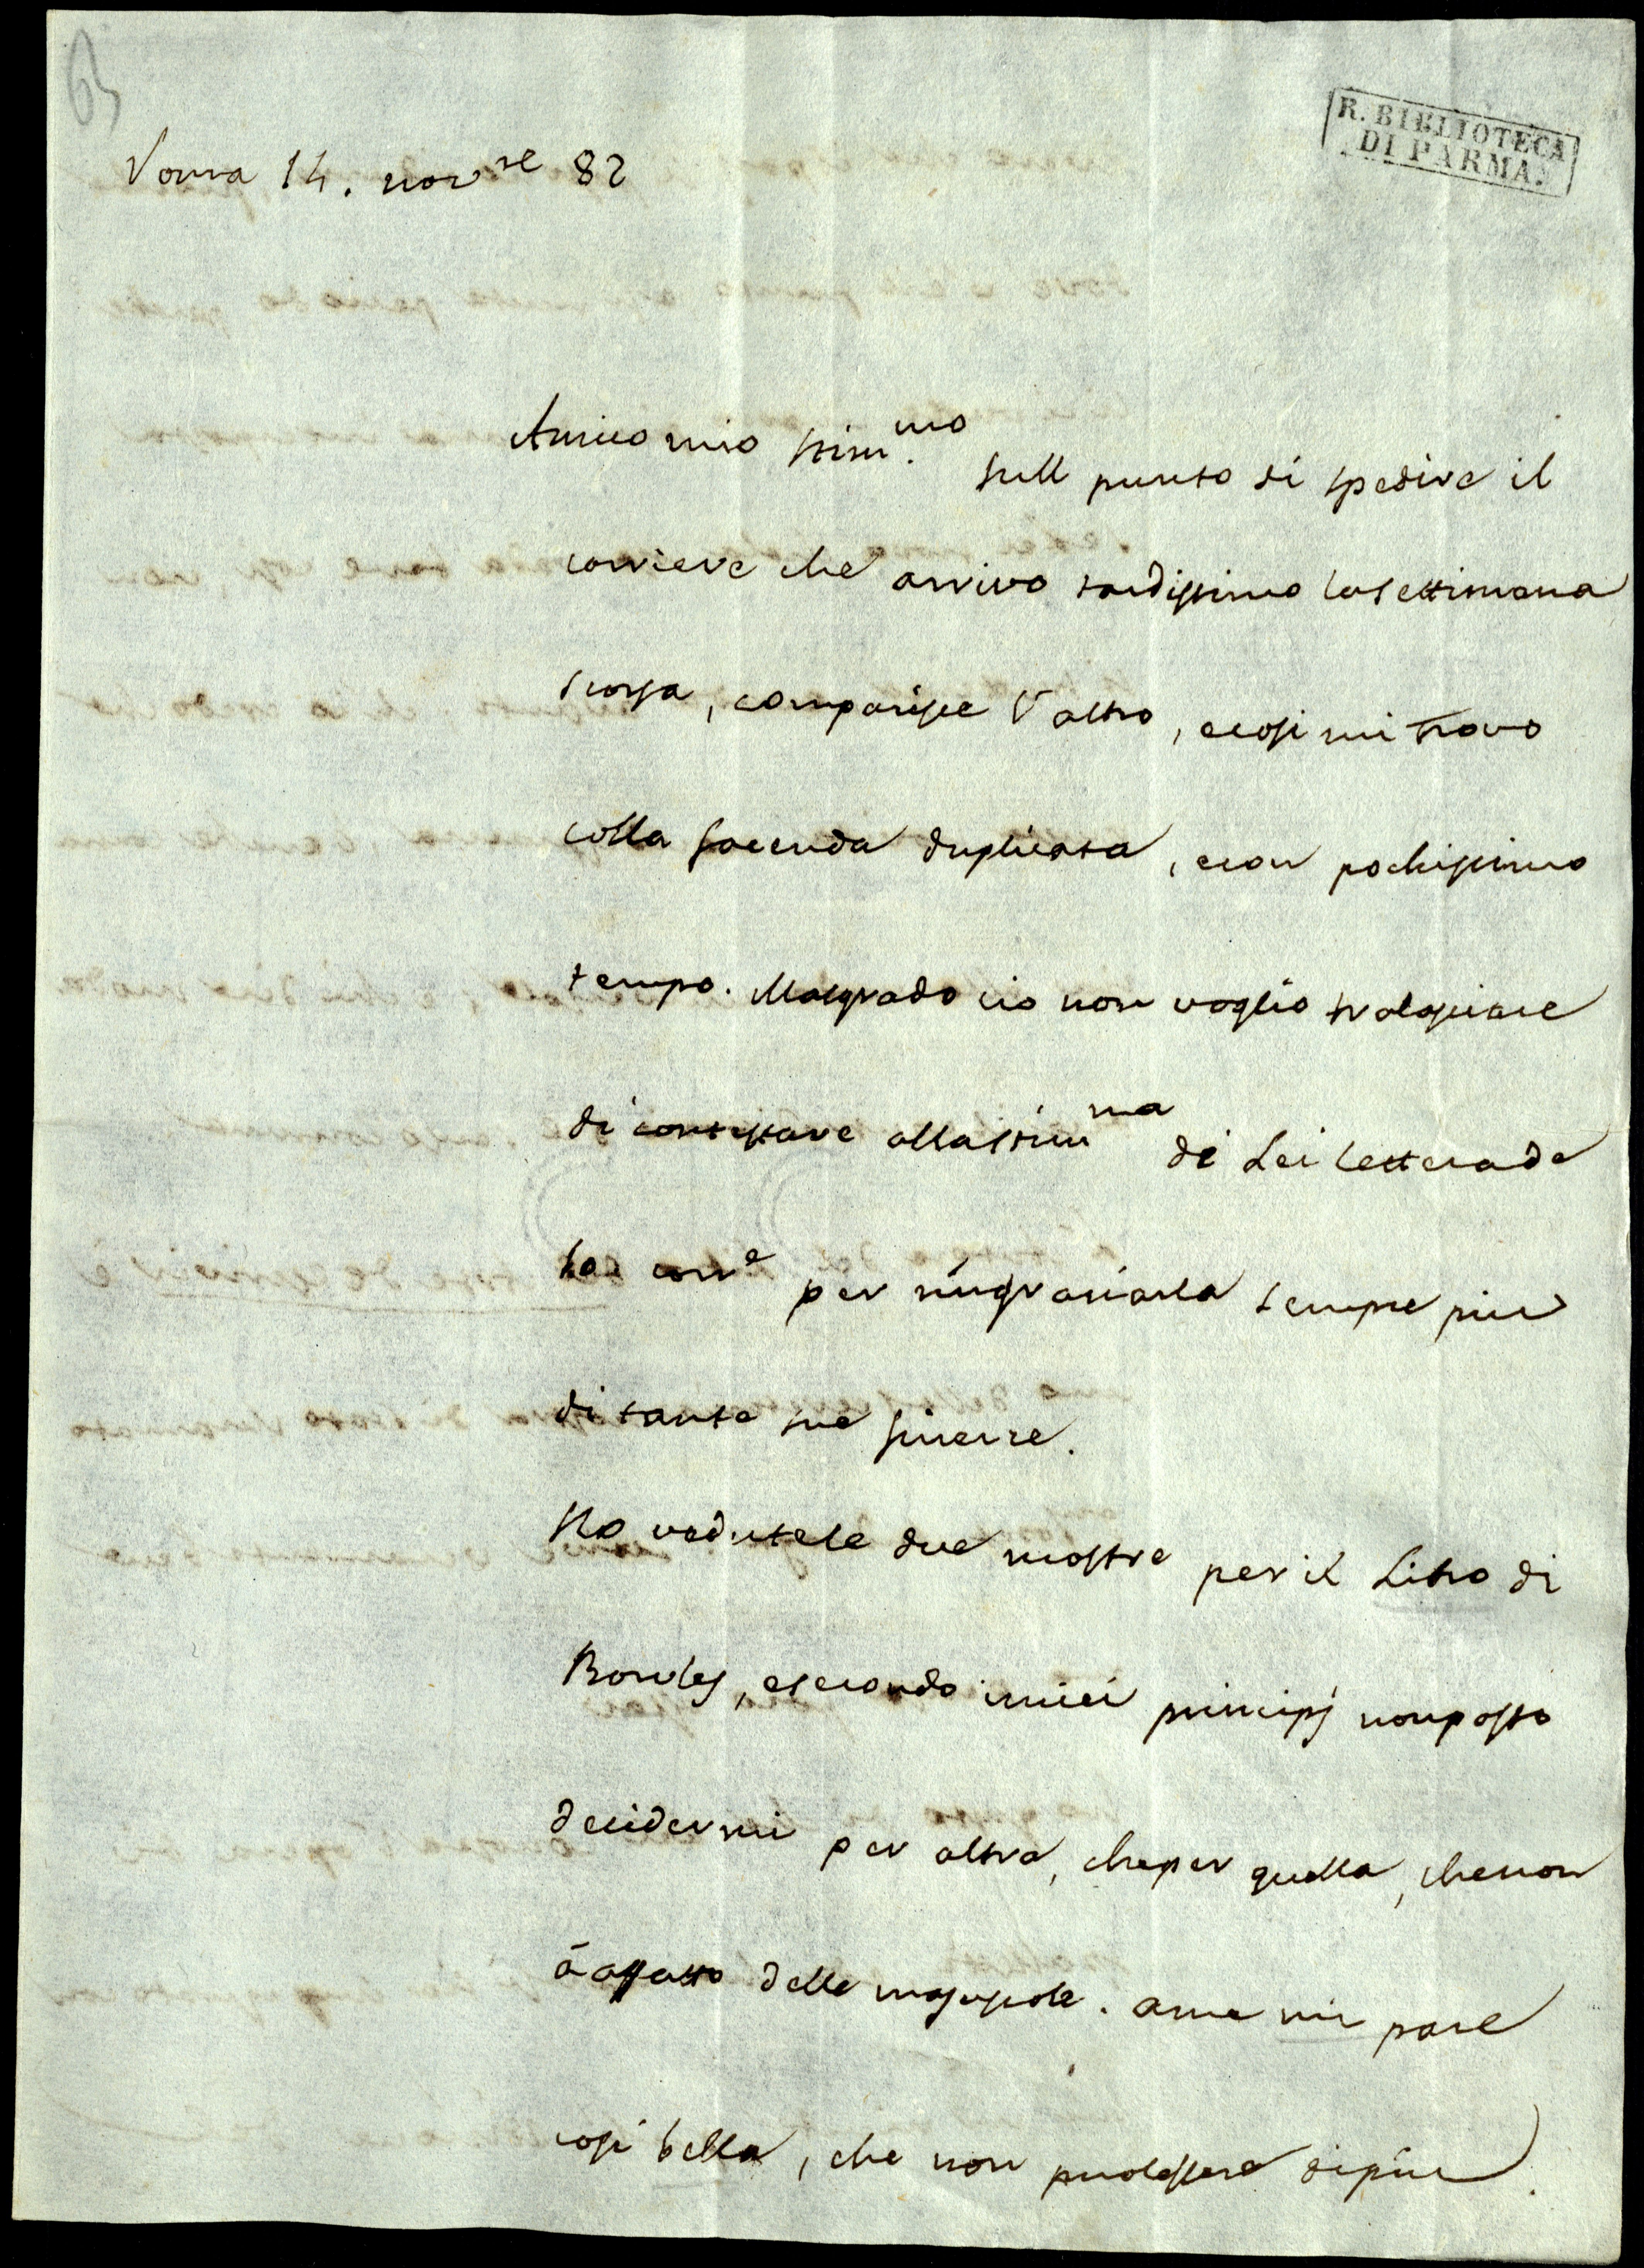 63
R. BIBLIOTECA
DI PARMA.
Roma 14. nov^re 82
Amico mio stim.^mo Sull punto di spedire il
corriere che arrivo tardissimo la settimana
scorsa, comparisce l'altro, e cosi mi trovo
colla facenda duplicata, e con pochissimo
tempo. Malgrado cio non voglio tralasciare
di contestare alla stim^ma di Lei lettera de
corr^e per ringraziarla sempre piu
di tante sue finezze.
Ho vedute le due mostre per il Libro di
Bowles, e secondo i miei principj non posso
decidermi per altra, che per quella, che non
à affatto delle majuscole. a me mi pare
cosi bella, che non puol essere di piu.